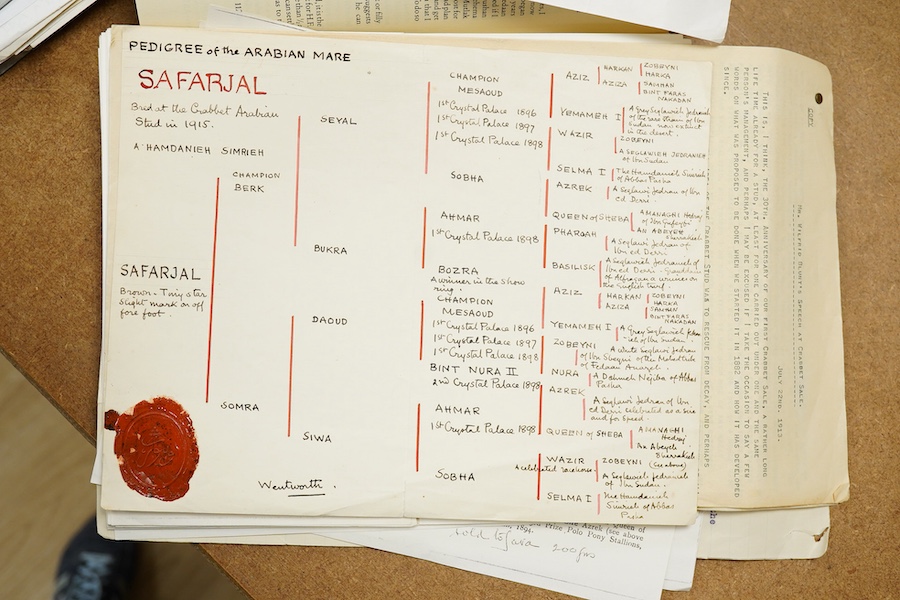 PEDIGREE of the ARABIAN MARE
SAFARJAL
Bred at the Crabbet Arabian
Stud in 1915.
A HAMDANIEH SIMRIEH
SAFARJAL
Brown - Tiny star
slight mark on off
fore foot.
CHAMPION
BERK
SOMRA
SEYAL
BUKRA
DAOUD
SIWA
Wentworth.
CHAMPION
MESAOUD
1st Crystal Palace 1896
1st Crystal Palace 1897
1st Crystal Palace 1898
SOBHA
AHMAR
1st Crystal Palace 1898
BOZRA
A winner in the show
ring.
CHAMPION
MESAOUD
1st Crystal Palace 1896
1st Crystal Palace 1897
1st Crystal Palace 1898
BINT NURA II
2nd Crystal Palace 1898
AHMAR
1st Crystal Palace 1898
SOBHA
AZIZ
YEMAMEH I
WAZIR
SELMA I
AZREK
QUEEN of SHEBA
PHAROAH
BASILISK
AZIZ
YEMAMEH I
ZOBEYNI
NURA
AZREK
QUEEN of SHEBA
WAZIR
A celebrated racehorse
SELMA I
HARKAN
AZIZA
ZOBEYNI
HARKA
SAMHAN
BINT FARAS
NAKADAN
A grey Seglawieh Jedranieh
of the rare strain of Ibn
Sudan now extinct
in the desert.
ZOBEYNI
A SEGLAWIEH JEDRANIEH
of Ibn Sudan
The Hamdanieh Simrieh
of Abbas Pasha
A Seglawi Jedran of Ibn
ed Derri
A MANAGHI Hedrej
AN ABEYEH
Sherrakieh
A Seglawi Jedran of
Ibn ed Derri
A Seglawieh Jedranieh of
Ibn ed Derri
the English turf.
HARKAN
AZIZA
ZOBEYNI
HARKA
SAMHAN
BINT FARAS
NAKADAN
A Grey Seglawieh
of Ibn Sudan
A white Seglawi Jedran
of Ibn Sbeyni of the
Fedaan Anazeh.
A Dahmeh Nejiba of Abbas
Pasha
A Seglawi Jedran of Ibn
ed Derri celebrated as a sire
and for speed.
A MANAGHI
Hedrej
An Abeyeh
Sherrakieh
ZOBEYNI (see above)
A Seglawieh Jedranieh
of Ibn Sudan.
The Hamdanieh
Simrieh of Abbas
Pasha
COPY
MR. WILFRID BLUNT'S SPEECH AT CRABBET SALE.
JULY 22nd. 1913.
THIS IS, I THINK, THE 30TH. ANNIVERSARY OF OUR FIRST CRABBET SALE, A RATHER LONG
LIFE TIME ALREADY FOR A STUD, AT LEAST FOR ONE CARRIED OUT UNDER ONE AND THE SAME
PERSON'S MANAGEMENT, AND PERHAPS I MAY BE EXCUSED IF I TAKE THE OCCASION TO SAY A FEW
WORDS ON WHAT WAS PROPOSED TO BE DONE WHEN WE STARTED IT IN 1882 AND HOW IT HAS DEVELOPED
SINCE.
CRABBET STUD WAS TO RESCUE FROM DECAY, AND PERHAPS
Queen of
Azrek (see above
1894.
Prize Polo Pony Stallions,
sold to Java 200 gns